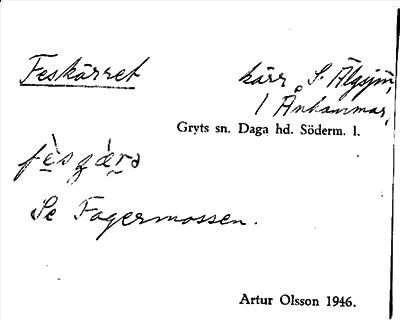 Feskärret kärr S. Älgsjön,
/ Ånhammar,
Gryts sn. Daga hd. Söderm. l.
Se Fagermossen.
Artur Olsson 1946.